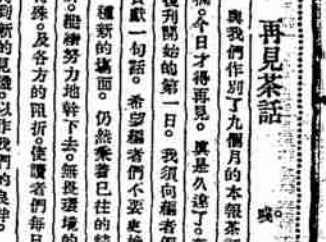 再見茶話
與我們作別了九個月的本報茶
。今日才得再見。眞是久違了。
復刊開始的第一日。我須向編者
獻一句話。希望編者們不要更
種新的場面。仍然秉着已往的
。繼續努力地幹下去。無畏環境的
殊。及各方的阻折。使讀者們每日
到新的見識。以作我們的良伴。